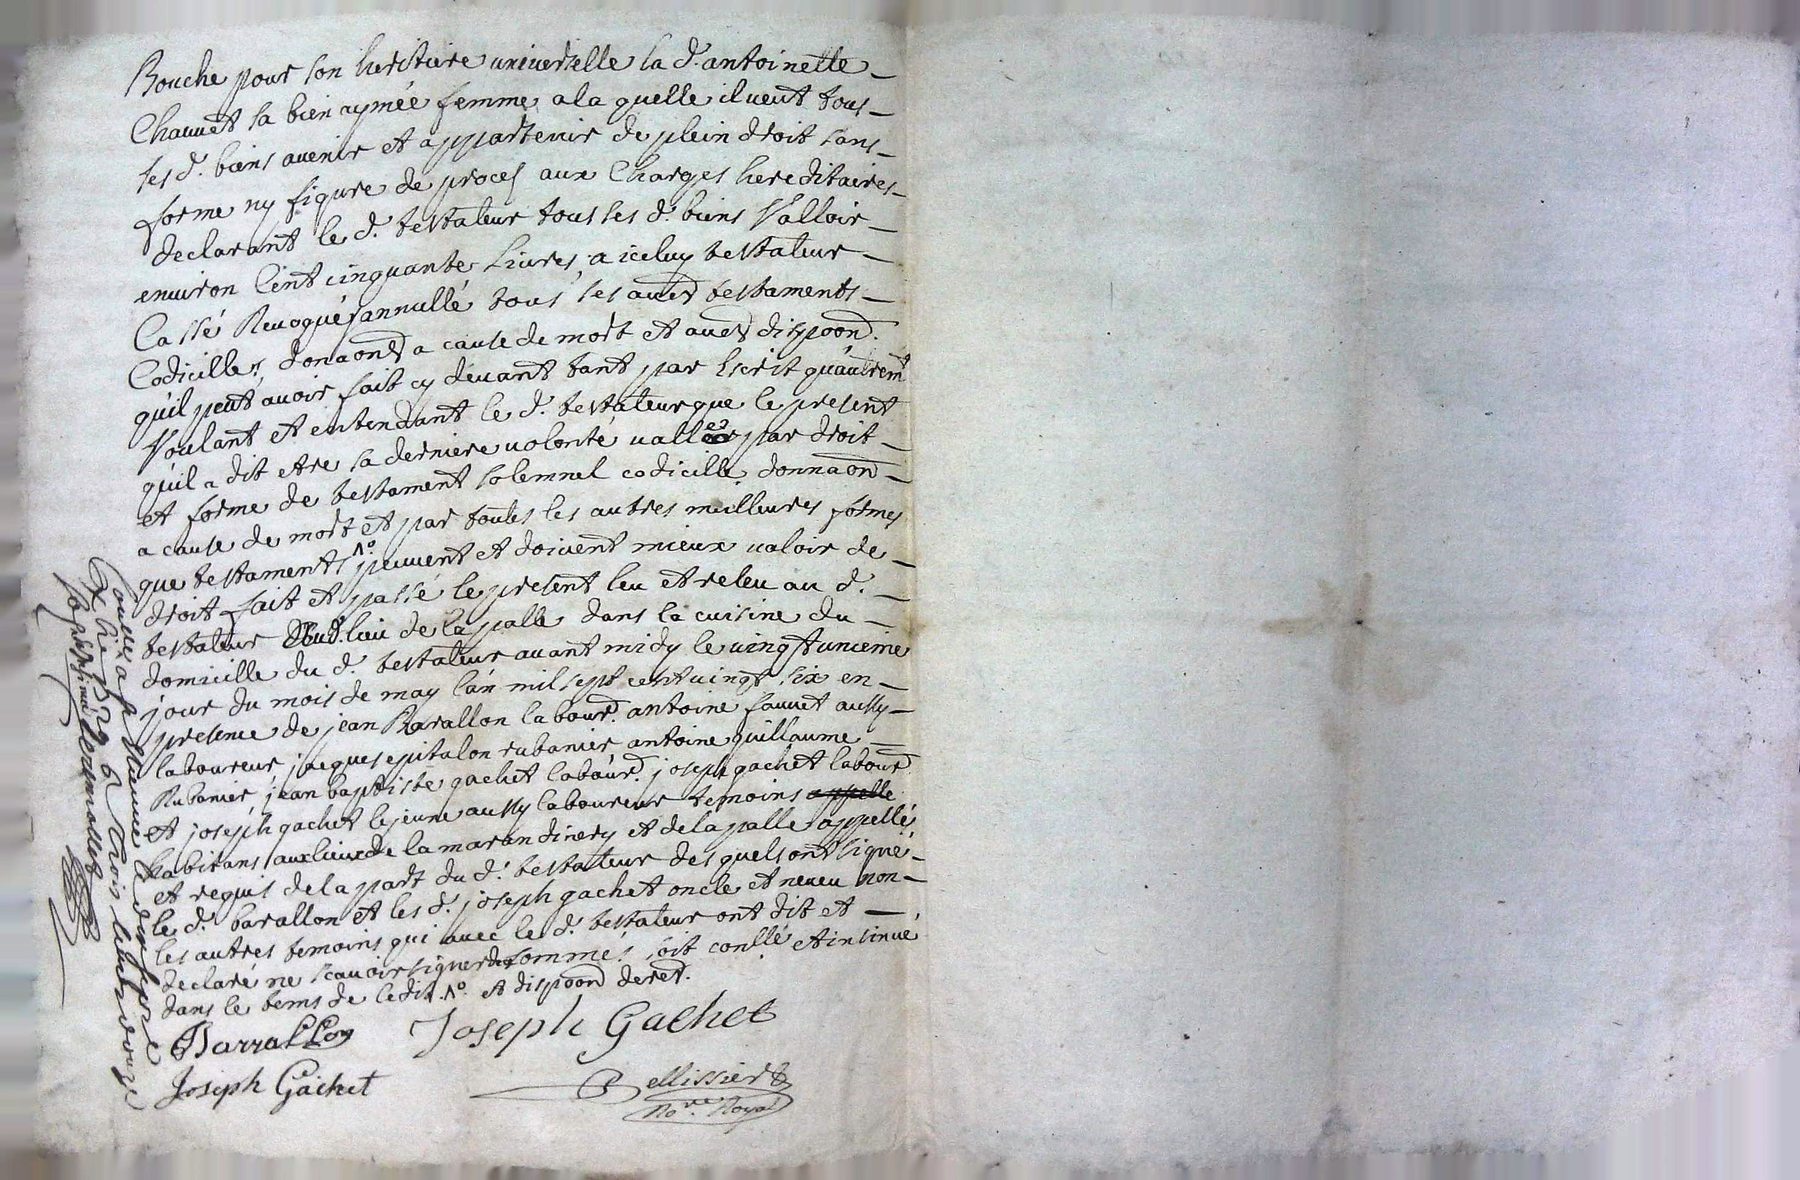 Bouche pour son heritiere universelle la d. antoinette
Chauvet sa bien aymée femme a la quelle il veut tous
ses d. biens avenir et appartenir de plein droit sans
forme ny figure de proces aux Charges hereditaires
declarant le d. testateur tous ses d. biens Valloir
environ Cent cinquante Livres, a iceluy testateur
Cassé Revoqué annullé tous ses autres testaments
Codicilles, donaons a cause de mort et autres dispoon.
qu'il peut avoir fait cy devant tant par Escrit qu'autremt
Voulant et entendant le d. testateur que le present
qu'il a dit etre sa derniere volonté par droit
et forme de testament solemnel codicille donnaon
a cause de mort et par toutes les autres meilleures formes
que testaments peuvent et doivent mieux valoir de
droit fait et passé le present leu et releu au d.
testateur Aud. lieu de la palle dans la cuisine du
domicille du d. testateur avant midy le vingt unieme
jour du mois de may l'an mil sept cent vingt six en
presence de jean Barallon labour. antoine fauvet aussy
laboureur jacques epitalon rubanier antoine guillaume
Rubanier, jean baptiste gachet labour. joseph gachet labour.
et joseph gachet le jeune aussy laboureur temoins appelle
habitans aux lieux de la marandinery et de la palle appellé
et requis de la part du d. testateur des quels ont signé
le d. barallon et les d. joseph gachet oncle et neveu non
les autres temoins qui avec le d. testateur ont dit et
declaré ne scavoir signer de sommés soit conllé et insinué
dans le tems de ledit No. et dispoon de ret.
Barrallon Joseph Gachet
Joseph Gachet
Pellissier
No.re Royal
Conllé a St Etienne le
1726 trois livres douze